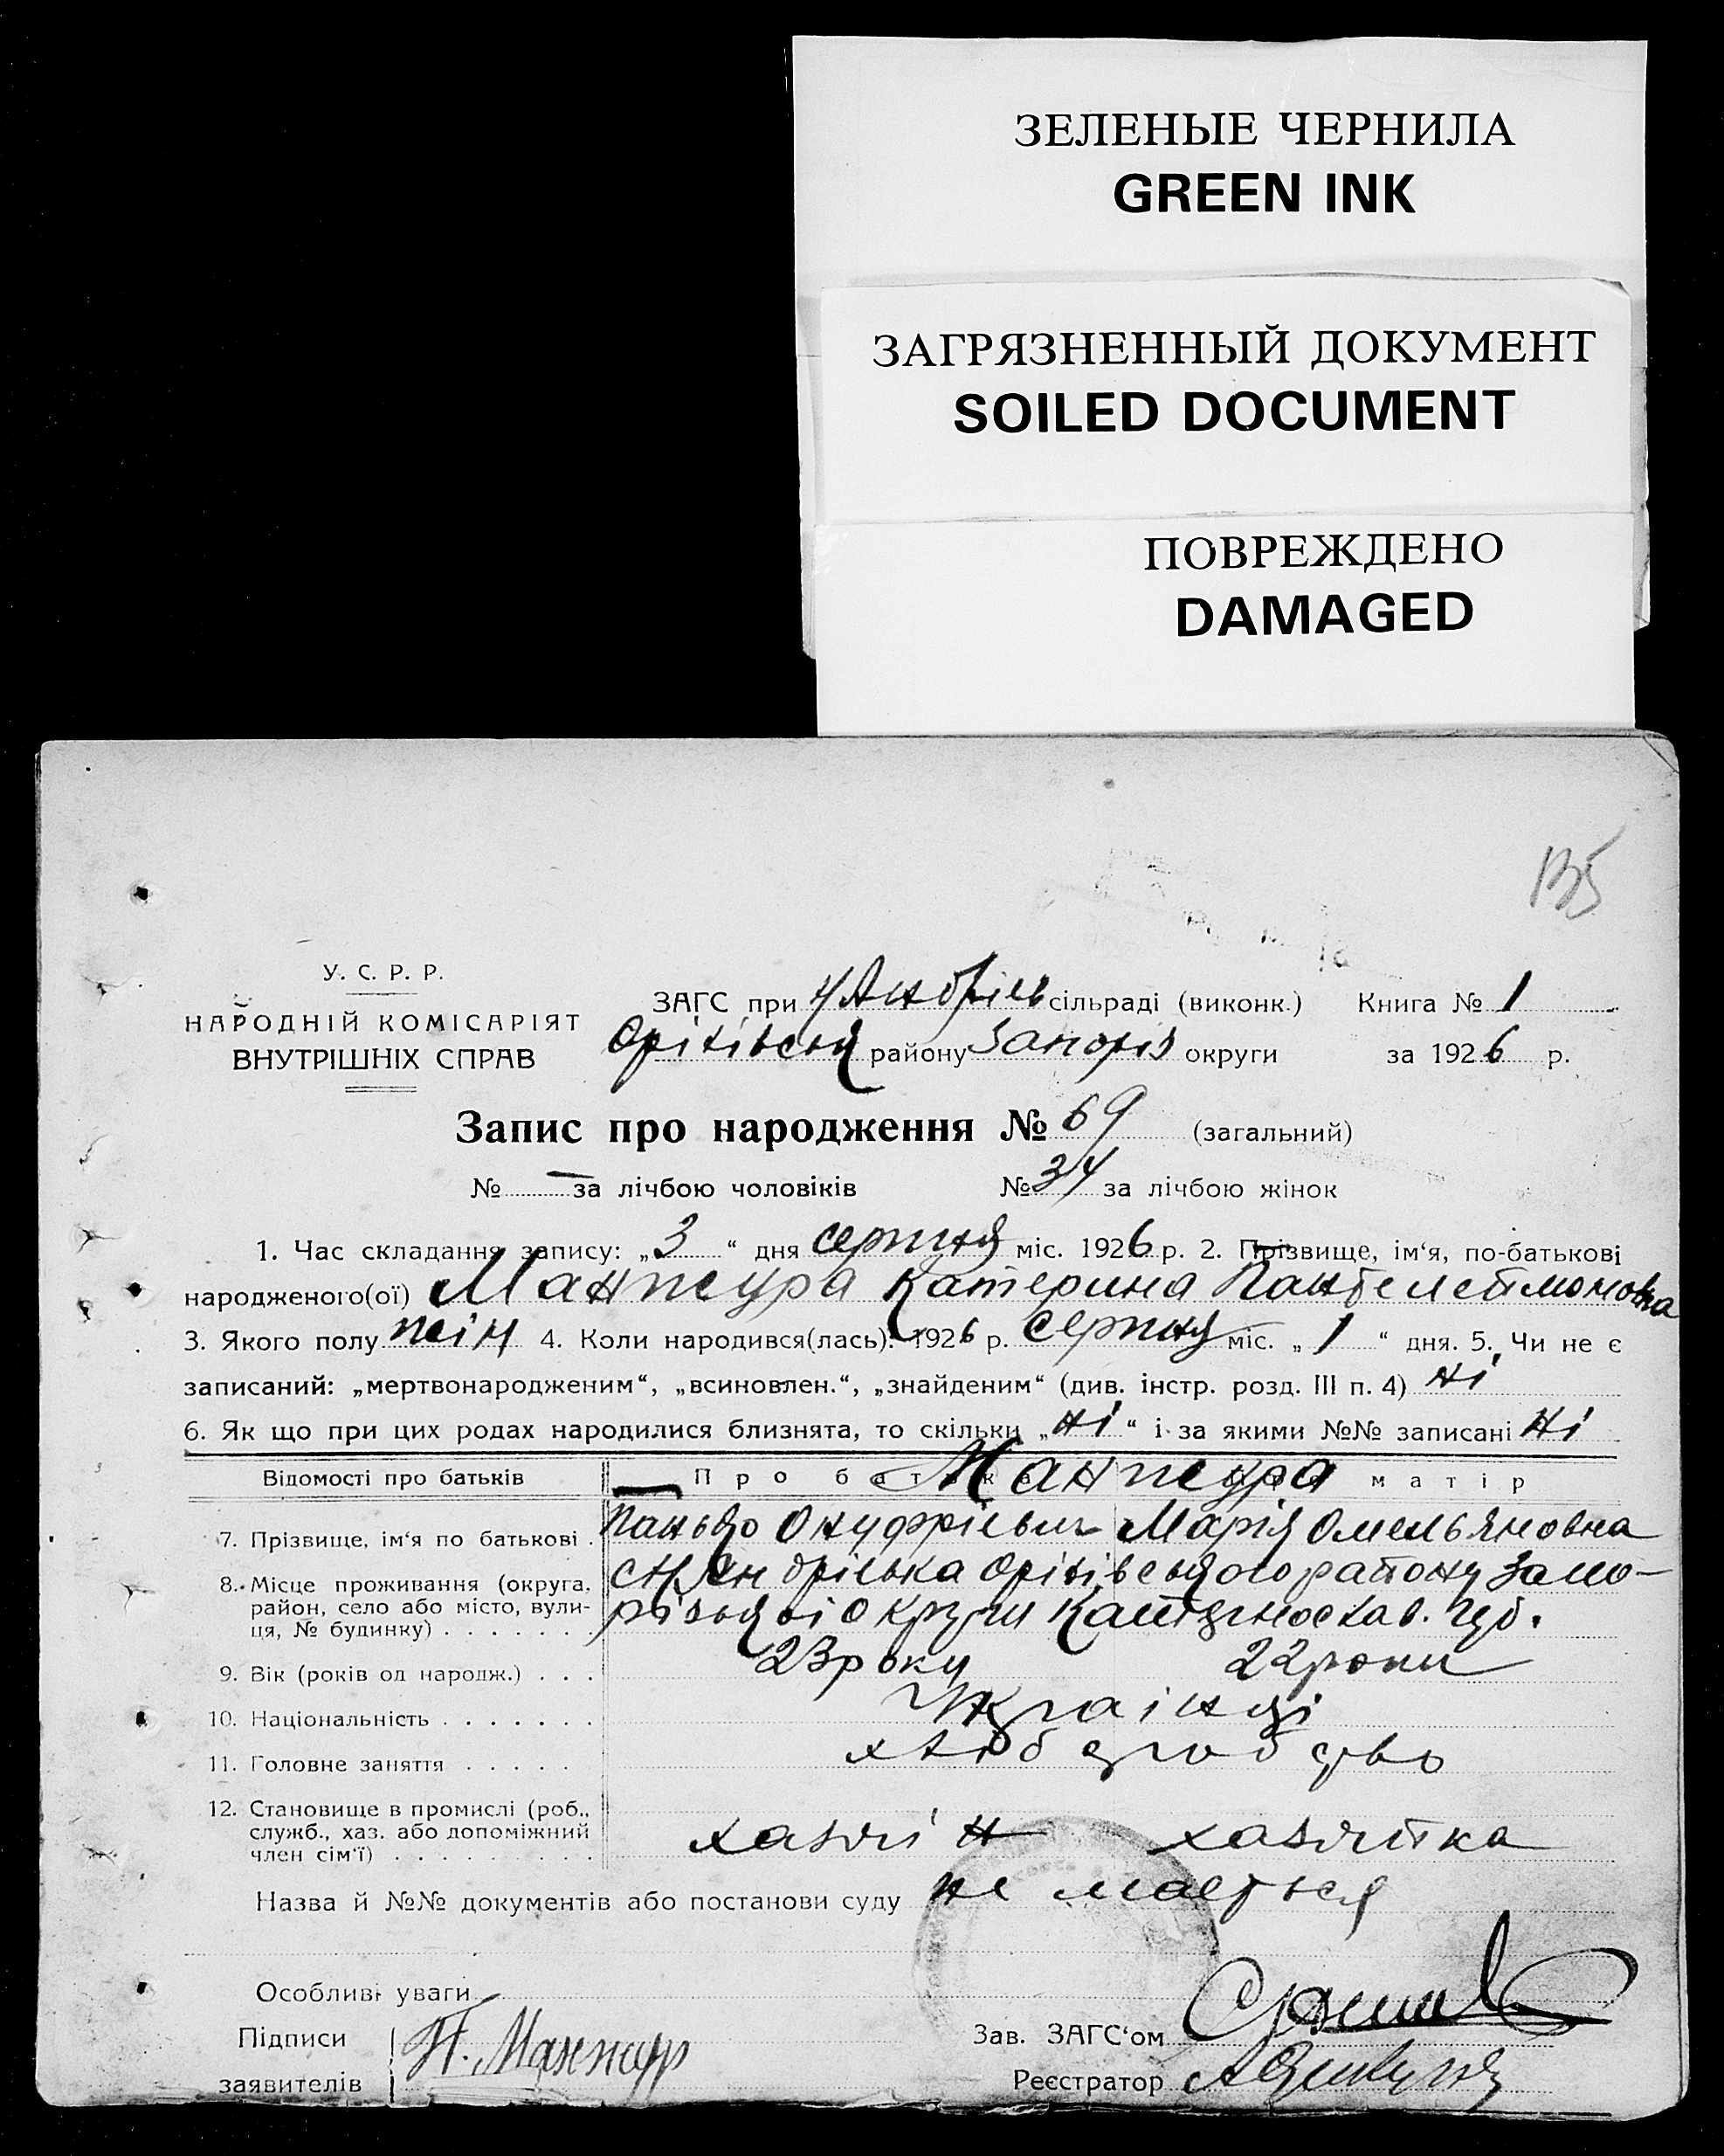 ЗЕЛЕНЫЕ ЧЕРНИЛА
GREEN INK
ЗАГРЯЗНЕННЫЙ ДОКУМЕНТ
SOILED DOCUMENT
ПОВРЕЖДЕНО
DAMAGED
У. С. Р. Р.
НАРОДНІЙ КОМІСАРІЯТ
ВНУТРІШНІХ СПРАВ
ЗАГС при Н Андріїв сільраді (виконк.) Книга № 1
Оріхівськ району Запоріз округи за 1926 р.
Запис про народження № 69 (загальний)
№ — за лічбою чоловіків № 34 за лічбою жінок
1. Час складання запису: „3“ дня серпня міс. 1926 р. 2. Прізвище, ім'я, по-батькові
народженого(ої) Манжура Катерина Пантелеймоновна
3. Якого полу жін 4. Коли народився(лась): 1926 р. серпня міс. „1“ дня. 5. Чи не є
записаний: „мертвонародженим“, „всиновлен.“, „знайденим“ (див. інстр. розд. III п. 4) ні
6. Як що при цих родах народилися близнята, то скільки „ні“ і за якими №№ записані ні
Відомості про батьків Про батька Манжура матір
7. Прізвище, ім'я по батькові . Онуфрієвич Марія Омельяновна
8. Місце проживання (округа, район, село або місто, вулиця, № будинку) . . . . . .
Андріївка Оріхівського району Запо-
різької округи Катеринослав. губ.
9. Вік (років од народж.) . . . 23 року 22 роки
10. Національність . . . . . . . Українці
11. Головне заняття . . . . . хліборобство
12. Становище в промислі (роб., служб., хаз. або допоміжний член сім'ї) . . . . . . . . .
хазяїн хазяйка
Назва й №№ документів або постанови суду не мається
Особливі уваги
Підписи
заявителів
П. Манжур
Зав. ЗАГС'ом
Реєстратор